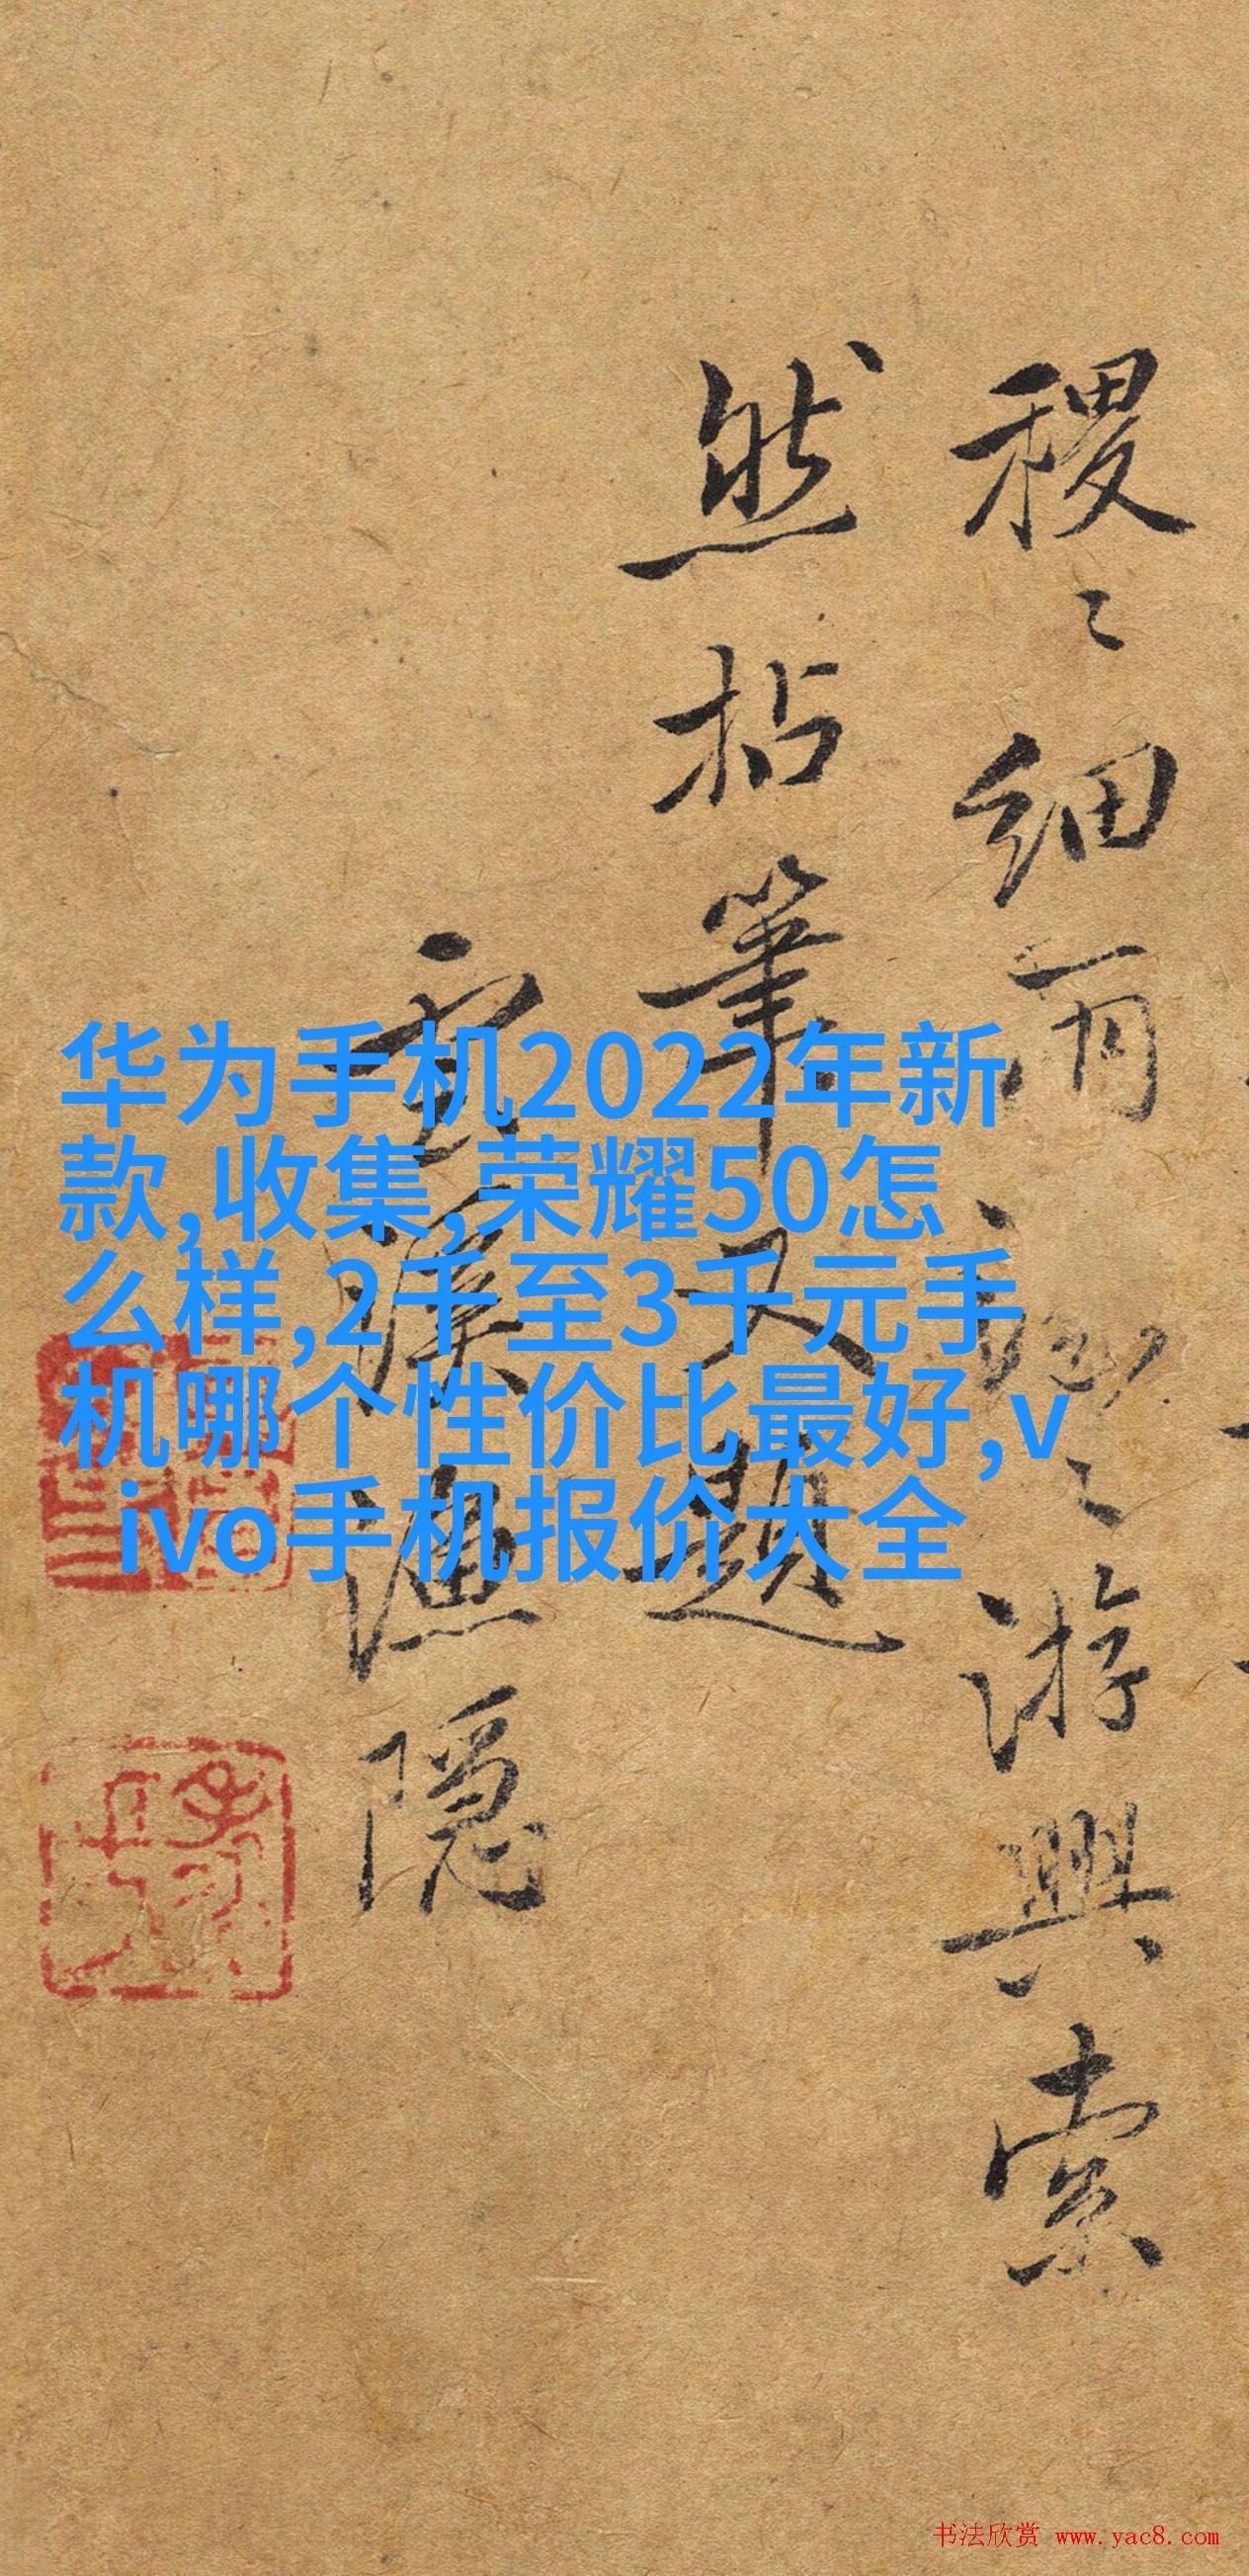 华为手机2022年新
款,收集,荣耀50怎
么样,2千至3千元手
机哪个性价比最好,v
ivo手机报价大全
稷〻細雨〻游興索
然拈筆又題
溪漁隱
书法欣赏 www.yac8.com